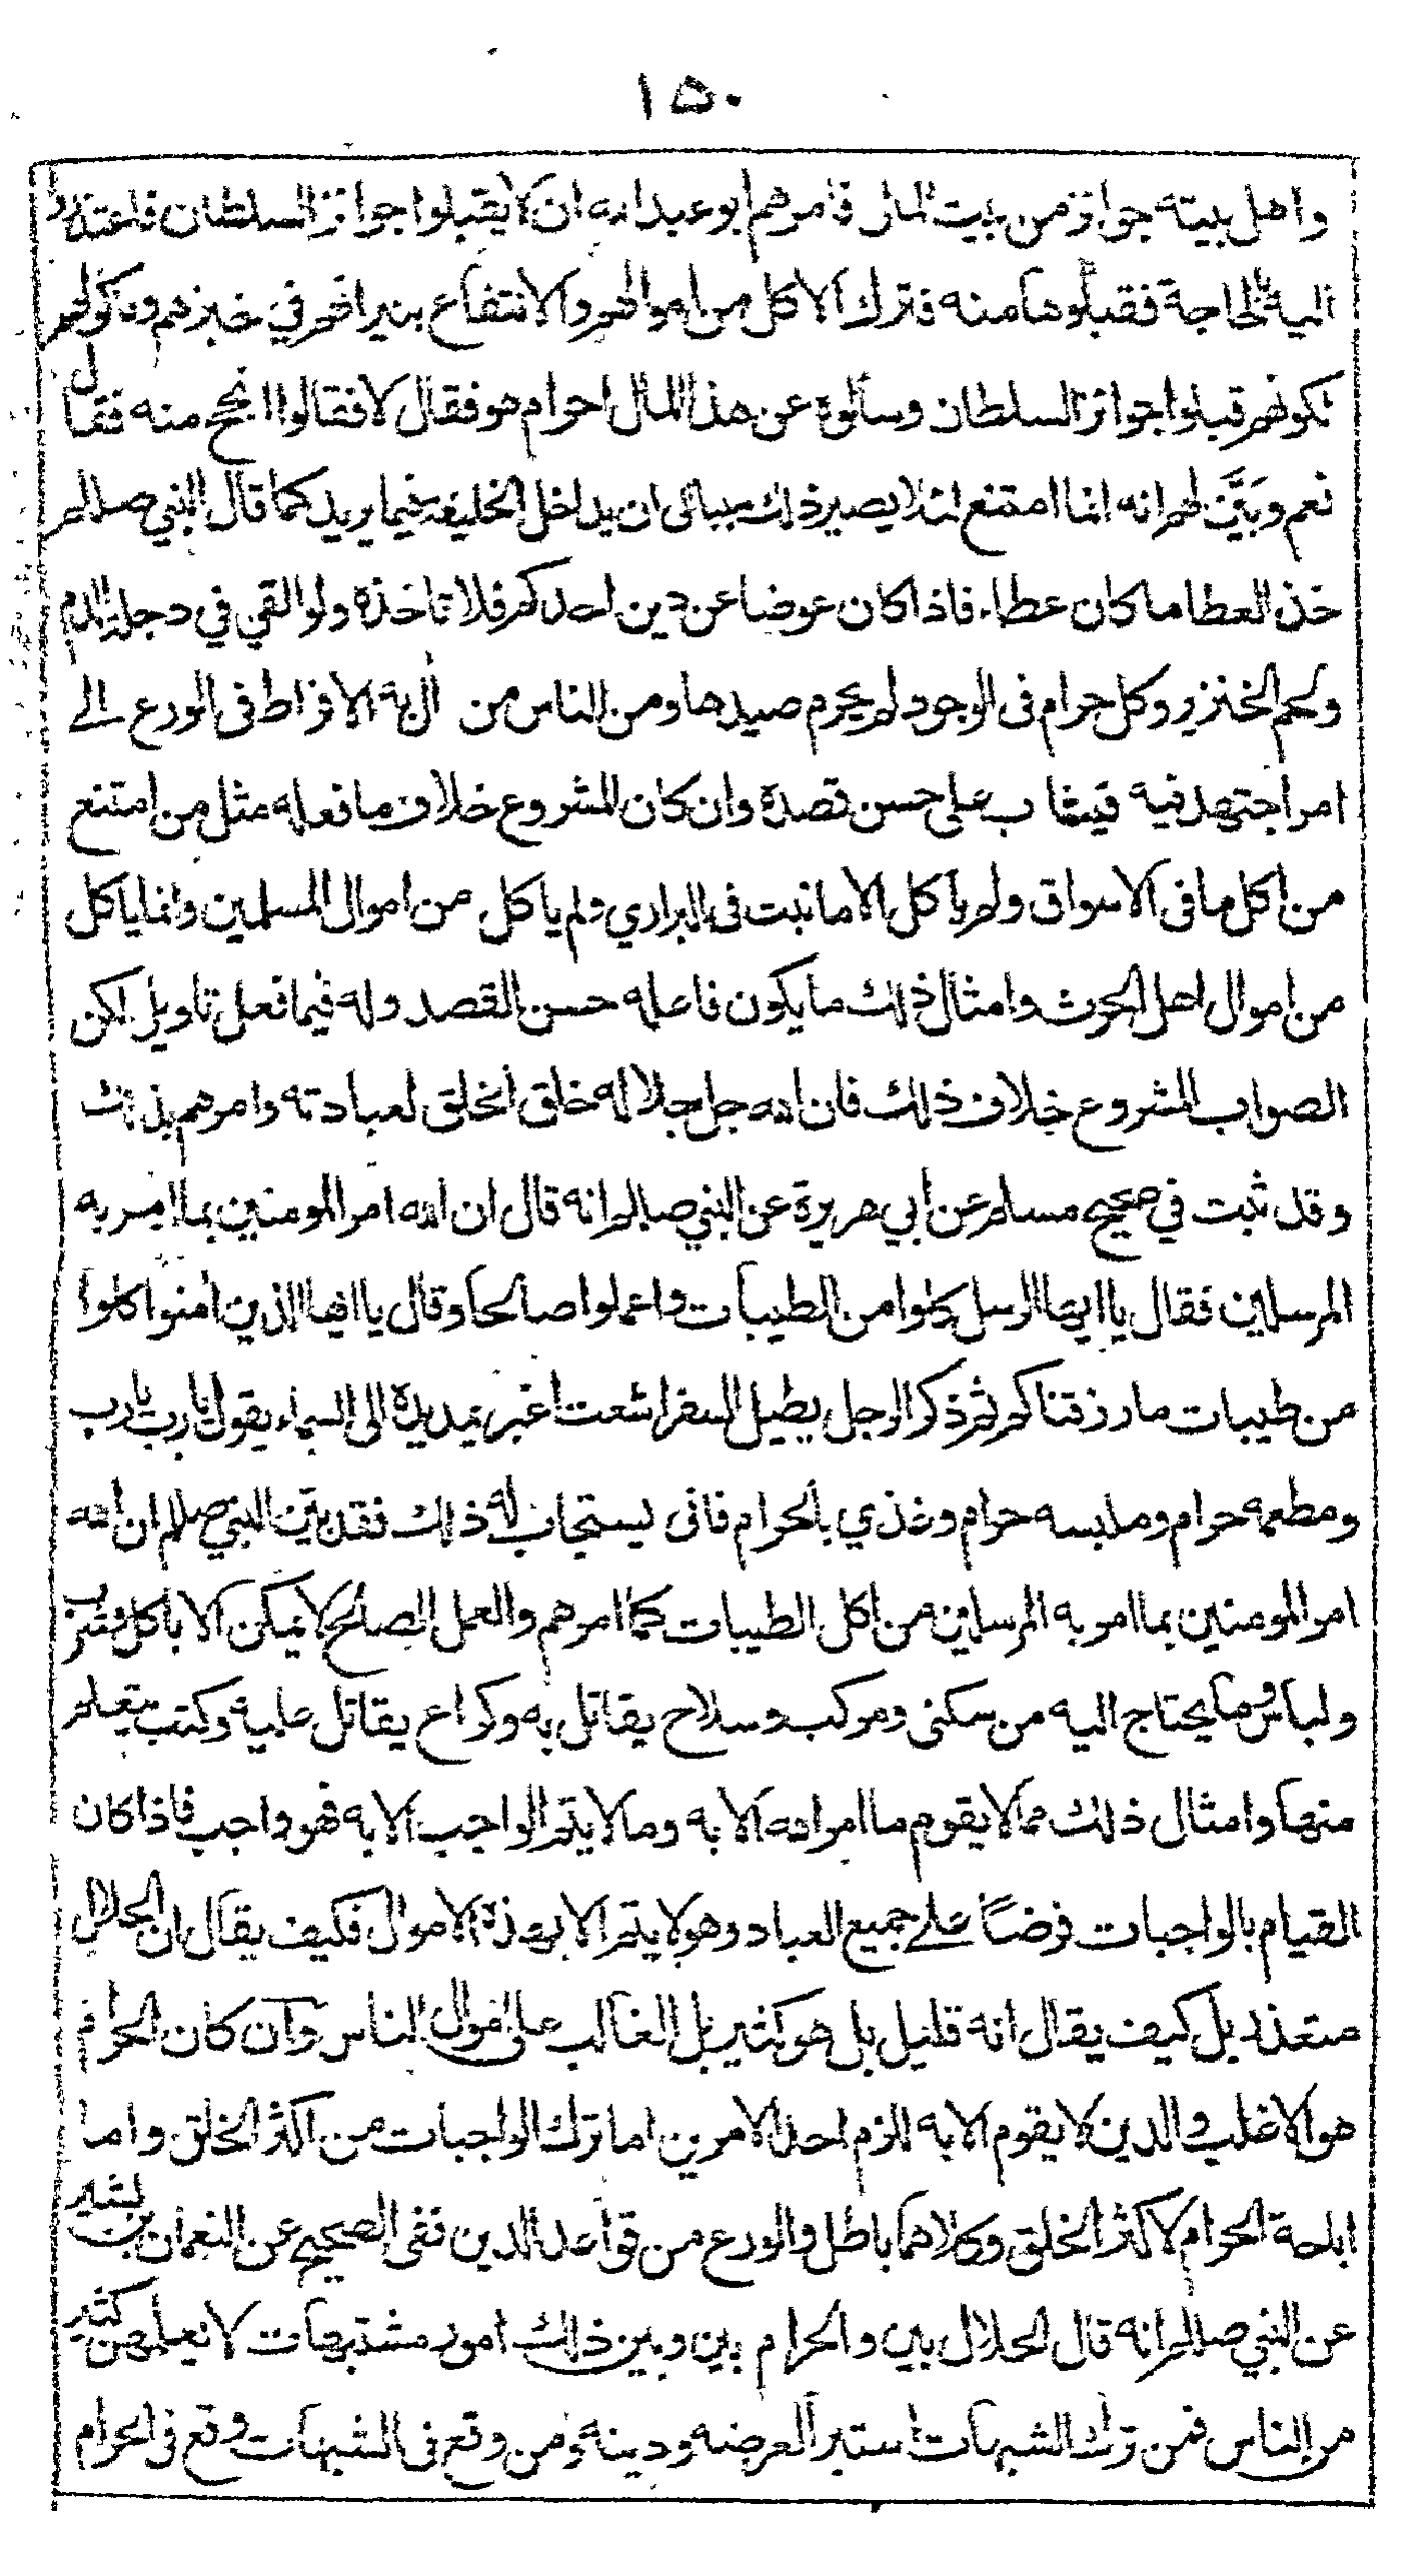 ١٥٠
واهل بيته جوائز من بيت المال فامرهم ابو عبد الله ان لا يقبلوا جوائز السلطان فاعتذروا
اليه للحاجة فقبلوها منه فترك الاكل من اموالهم والانتفاع بنيرانهم في خبزهم وماكولهم
لكونهم قبلوا جوائز السلطان وسألوه عن هذا المال احرام هو فقال لا فقالوا انحج منه فقال
نعم وبَيَّن لهم انه انما امتنع لئلا يصير ذلك سببا الى ان يداخل الخليفة فيما يريد كما قال النبي صلعم
خذ العطا ما كان عطاء فاذا كان عوضا عن دين احدكم فلا تاخذه ولو القي في دجلة الدم
ولحم الخنزير وكل حرام في الوجود لم يحرم صيدها ومن الناس من آل به الافراط في الورع الى
امر اجتهد فيه فيثاب على حسن قصده وان كان المشروع خلاف ما فعله مثل من امتنع
من اكل ما في الاسواق ولم ياكل الا ما نبت في البراري ولم ياكل من اموال المسلمين وانما ياكل
من اموال اهل الحرث وامثال ذلك ما يكون فاعله حسن القصد وله فيما فعل تاويل لكن
الصواب المشروع خلاف ذلك فان الله جل جلاله خلق الخلق لعبادته وامرهم بذلك
وقد ثبت في صحيح مسلم عن ابي هريرة عن النبي صلعم انه قال ان الله امر المومنين بما امر به
المرسلين فقال يا ايها الرسل كلوا من الطيبات واعملوا صالحا وقال يا ايها الذين امنوا كلوا
من طيبات ما رزقناكم ثم ذكر الرجل يطيل السفر اشعث اغبر يمد يده الى السماء يقول يا رب يا رب
ومطعمه حرام وملبسه حرام وغذي بالحرام فانى يستجاب له ذلك فقد بيّن النبي صلعم ان الله
امر المومنين بما امر به المرسلين من اكل الطيبات كما امرهم والعمل الصالح لا يمكن الا باكل وشرب
ولباس وما يحتاج اليه من سكنى ومركب وسلاح يقاتل به وكراع يقاتل عليه وكتب يتعلم
منها وامثال ذلك مما لا يقوم ما امر الله الا به وما لا يتم الواجب الا به فهو واجب فاذا كان
القيام بالواجبات فرضاً على جميع العباد وهو لا يتم الا بهذه الاموال فكيف يقال ان الحلال
متعذر بل كيف يقال انه قليل بل هو كثير بل الغالب على اموال الناس وان كان الحرام
هو الاغلب والدين لا يقوم الا به لزم احد الامرين اما ترك الواجبات من اكثر الخلق واما
اباحة الحرام لاكثر الخلق وكلاهما باطل والورع من قواعد الدين ففى الصحيح عن النعمان بن بشير
عن النبي صلعم انه قال الحلال بين والحرام بين وبين ذلك امور مشتبهات لا يعلمهن كثير
من الناس فمن ترك الشبهات استبرأ لعرضه ودينه ومن وقع فى الشبهات وقع فى الحرام